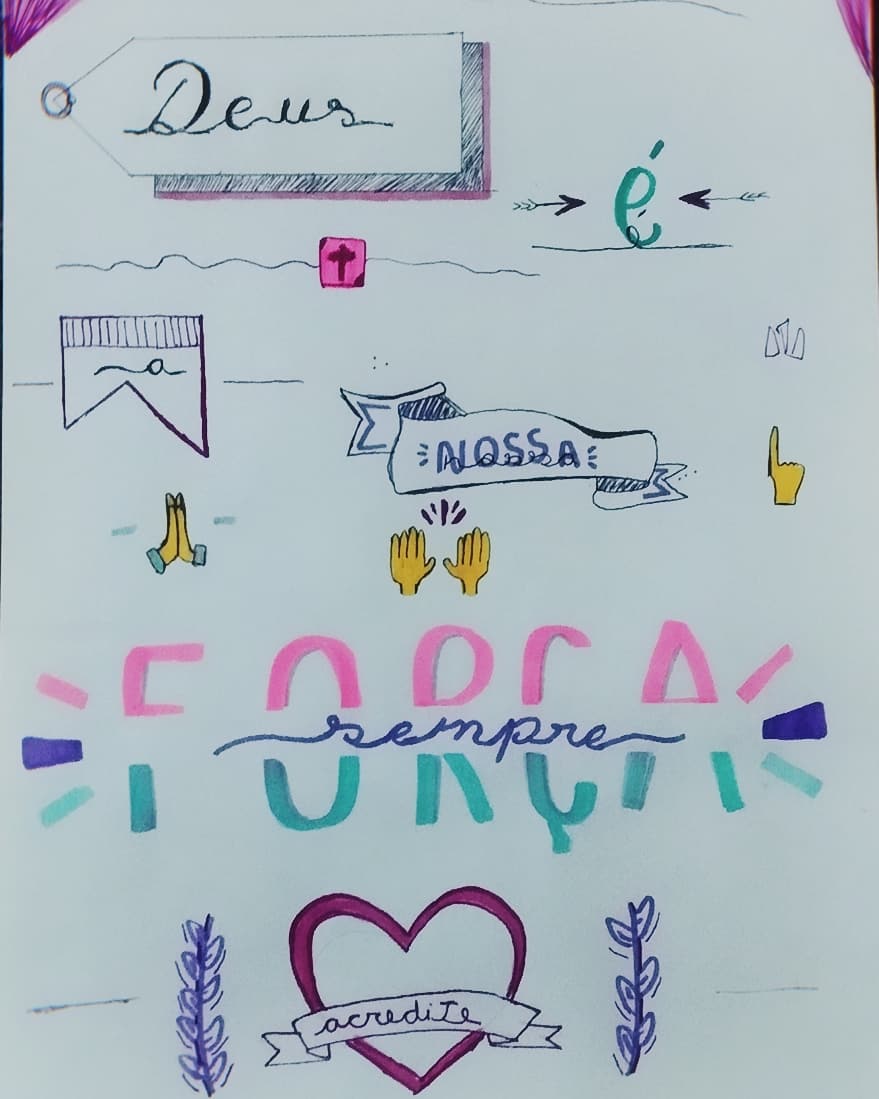 Deus
é
a
NOSSA
nossa
FORÇA
sempre
acredite